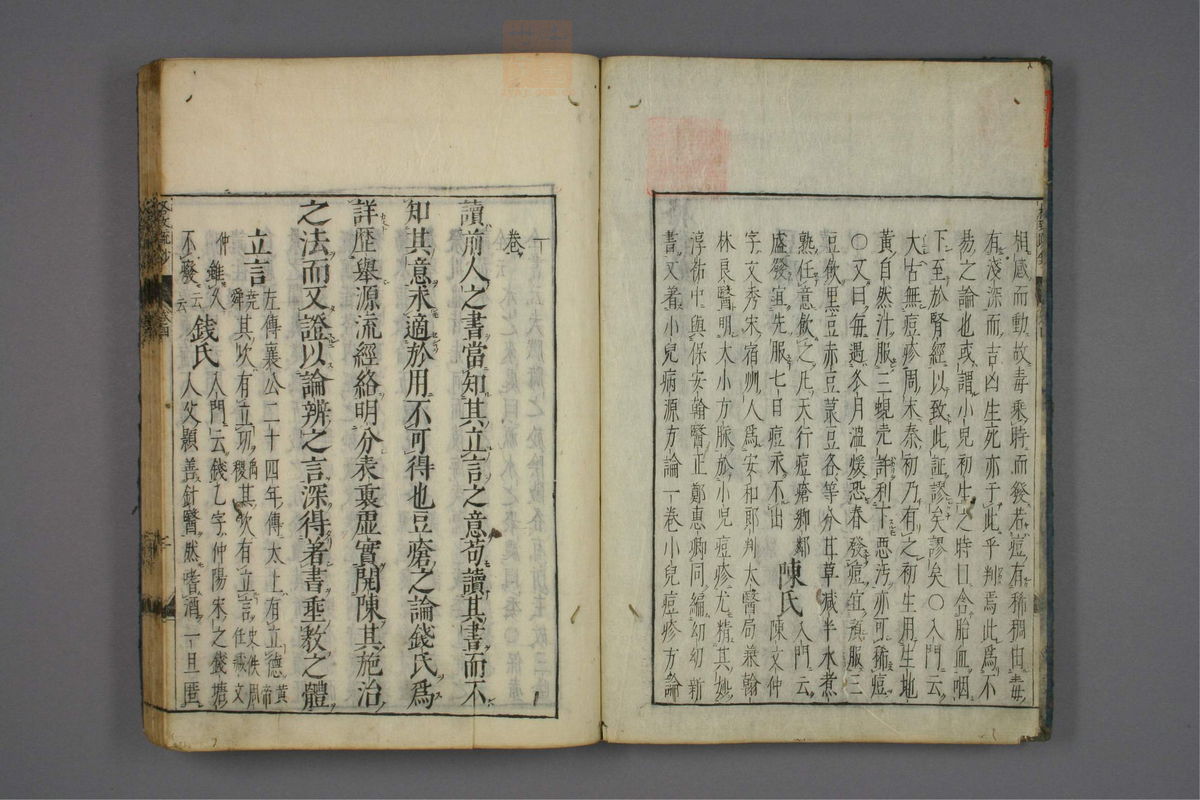 相感而動故毒乗時而發若痘有稀稠由毒
有淺深而吉凶生死亦于此乎判焉此爲不
易之論也或謂小兒初生之時口含胎血咽
下至於腎經以致此証謬矣謬矣〇入門云
大古無痘疹周末秦初乃有之初生用生地
黄自然汁服三蜆売許利下惡汚亦可稀痘
〇又曰毎遇冬月溫煖恐春發痘宜預服三
豆飲黒豆赤豆菉豆各等分甘草减半水煮
熟任意飲之凡天行痘瘡郷鄰
盛發宜先服七日痘永不出 陳氏 入門云陳文仲
字文秀宋宿州人爲安和郎判太醫局兼翰
林良醫明大小方脈於小児痘疹尤精其妙
淳祐中與保安翰醫正鄭惠卿同編幼幼新
書又著小兒病源方論一卷小兒痘疹方論
一
卷
讀前人之書當知其立言之意苟讀其書而不
知其意求適於用不可得也豆瘡之論錢氏爲
詳歴舉源流經絡明分表裏虚實開陳其施治
之法而又證以論辨之言深得著書垂教之體
立言 左傳襄公二十四年傳太上有立德黄帝
堯舜其次有立功禹稷其次有立言史佚周任臧文
仲雖久
不廢云云 錢氏 入門云錢乙字仲陽宋之錢塘
人父顥善針醫然嗜酒一旦匿